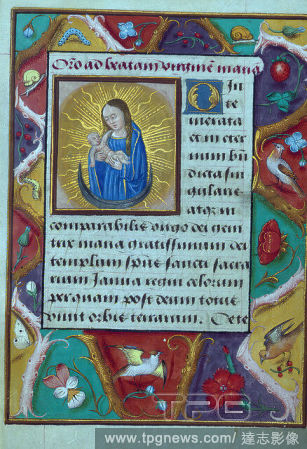 Oro ad beatam virginē maria
O In
te
merata
et in eter
num bn̄
dicta sin
gularis
atq; in
comparabilis virgo dei geni
trix maria gratissimum dei
templum spūs sancti sacra
rium Janua regni celorum
per quam post deum totus
viuit orbis terrarum. De te
TPG
www.tpgnews.com/達志影像